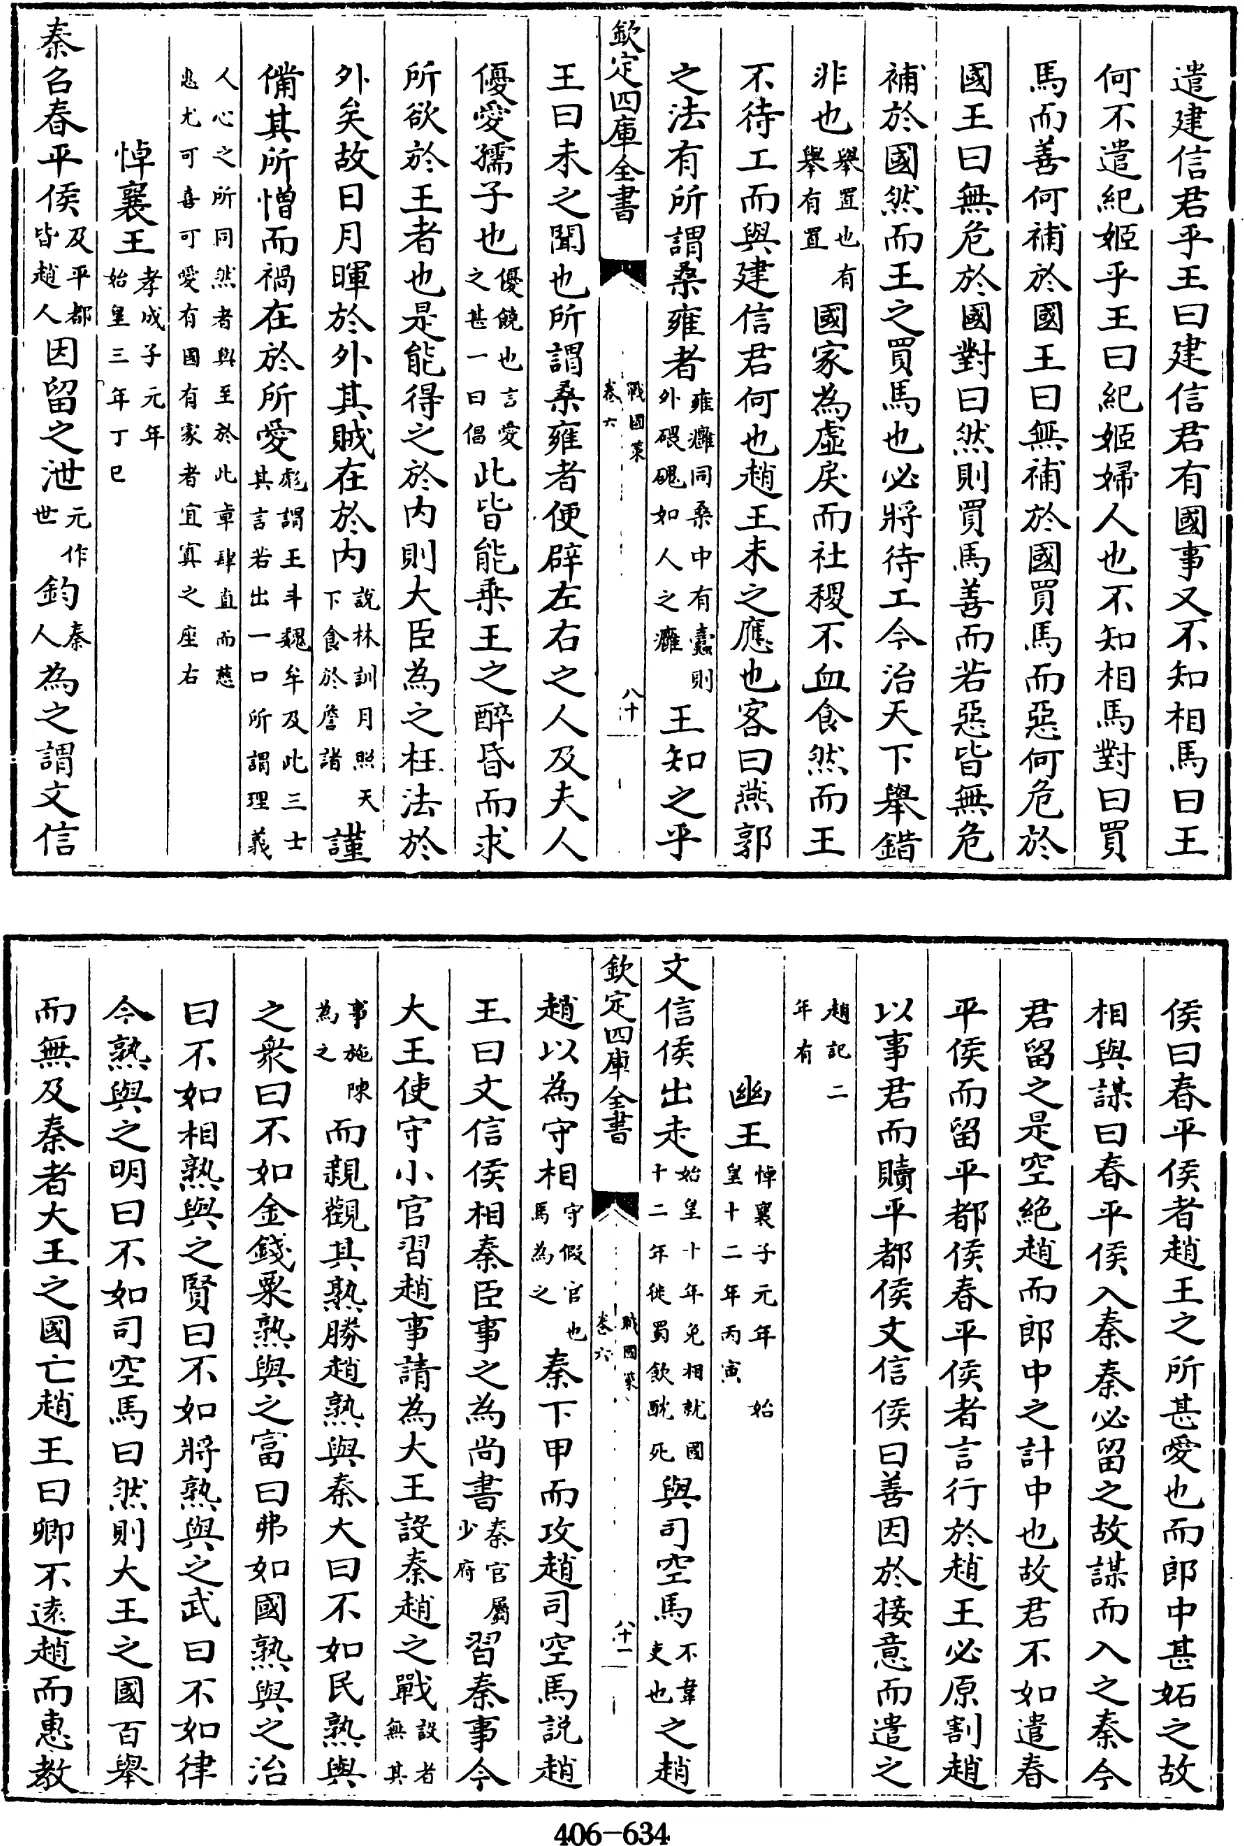 遣建信君乎王曰建信君有國事又不知相馬曰王
何不遣紀姬乎王曰紀姬婦人也不知相馬對曰買
馬而善何補於國王曰無補於國買馬而惡何危於
國王曰無危於國對曰然則買馬善而若惡皆無危
補於國然而王之買馬也必將待工今治天下舉錯
非也舉置也有舉有置國家為虛戾而社稷不血食然而王
不待工而與建信君何也趙王未之應也客曰燕郭
之法有所謂桑雍者雍癰同桑中有蠹則外磈磈如人之癰王知之乎
欽定四庫全書
戰國策
卷六
八十
王曰未之聞也所謂桑雍者便辟左右之人及夫人
優愛孺子也優饒也言愛之甚一曰倡此皆能乗王之醉昏而求
所欲於王者也是能得之於内則大臣為之枉法於
外矣故日月暉於外其賊在於内說林訓月照天下食於詹諸謹
備其所憎而禍在於所愛彪謂王斗魏牟及此三士其言若出一口所謂理義
人心之所同然者與至於此章肆直而慈
忠尤可喜可愛有國有家者宜寘之座右
悼襄王孝成子元年始皇三年丁巳
秦召春平侯及平都皆趙人因留之泄元作世鈞秦人為之謂文信
侯曰春平侯者趙王之所甚愛也而郎中甚妬之故
相與謀曰春平侯入秦秦必留之故謀而入之秦今
君留之是空絶趙而郎中之計中也故君不如遣春
平侯而留平都侯春平侯者言行於趙王必原割趙
以事君而贖平都侯文信侯曰善因於接意而遣之
趙記二年有
幽王悼襄子元年始皇十二年丙寅
文信侯出走始皇十年免相就國十二年徙蜀飲酖死與司空馬不韋吏也之趙
欽定四庫全書
戰國策
卷六
八十一
趙以為守相守假官也馬為之秦下甲而攻趙司空馬説趙
王曰文信侯相秦臣事之為尚書秦官屬少府習秦事今
大王使守小官習趙事請為大王設秦趙之戰設者無其
事施陳為之而親觀其孰勝趙孰與秦大曰不如民孰與
之衆曰不如金錢粟孰與之富曰弗如國孰與之治
曰不如相孰與之賢曰不如將孰與之武曰不如律
令孰與之明曰不如司空馬曰然則大王之國百舉
而無及秦者大王之國亡趙王曰卿不逺趙而惠教
406-634